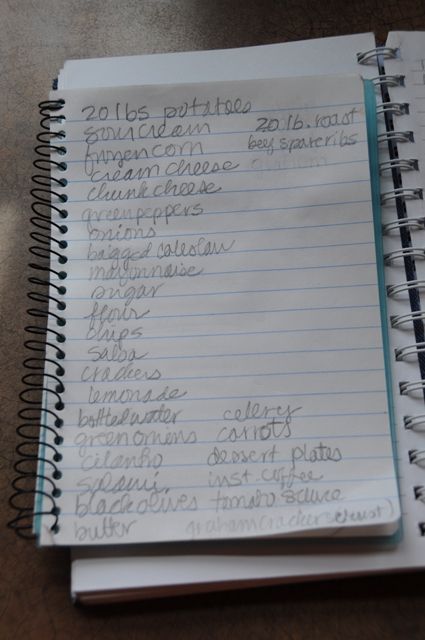 20 lbs potatoes
sour cream 20 lb. roast
frozen corn beef spareribs
cream cheese graham
chunk cheese
green peppers
onions
bagged coleslaw
mayonnaise
sugar
flour
chips
salsa
crackers
lemonade
bottled water celery
green onions carrots
cilantro dessert plates
salami inst. coffee
black olives tomato sauce
butter graham crackers (crust)